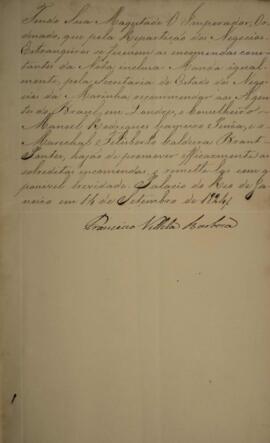 Tendo Sua Magestade O Imperador, Or-
denado, que pela Repartição dos Negocios
Estrangeiros se fizessem as encomendas cons-
tantes da Nota inclusa Manda igual-
mente, pela Secretaria de Estado dos Nego-
cios da Marinha, recommendar aos Agen-
tes do Brazil em Londres, o Conselheiro
Manoel Rodrigues Gameiro Pessôa, e o
Marechal Felisberto Caldeira Brant
Pontes, hajão de promover efficazmente as
sobreditas encomendas, e remetter com
possivel brevidade. Palacio do Rio de Ja-
neiro em 14 de Setembro de 1824
Francisco Villela Barboza